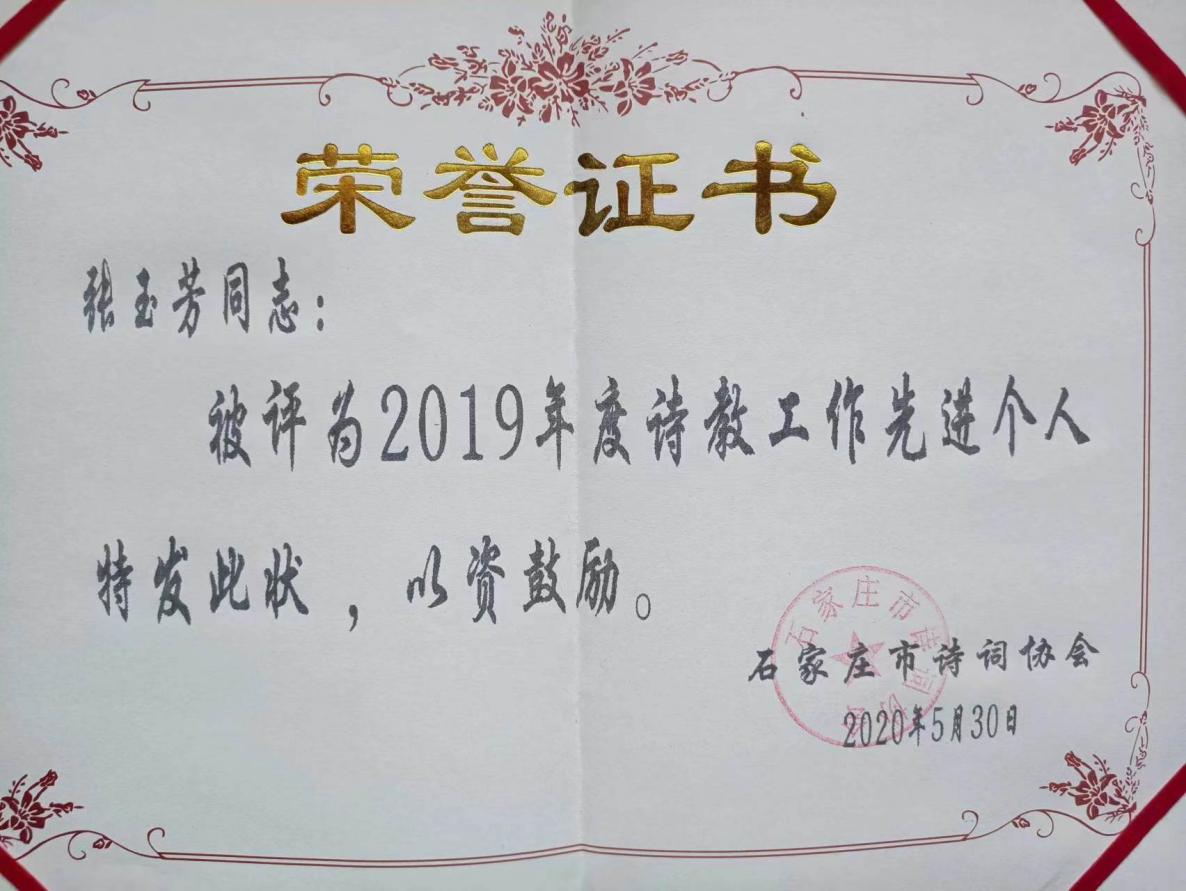 荣誉证书
张玉芳同志：
被评为2019年度诗教工作先进个人
特发此状，以资鼓励。
石家庄市诗词协会
石家庄市诗词协会
2020年5月30日